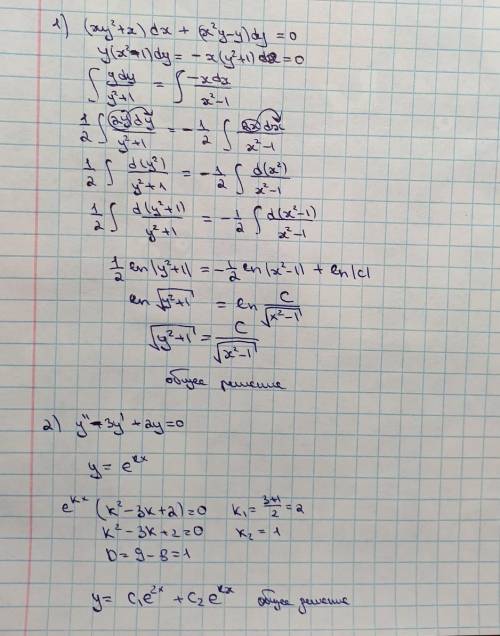 1) (xy²+x) dx + (x²y-y)dy = 0
y(x²-1)dy = -x(y²+1) dx = 0
∫ ydy/(y²+1) = ∫ -xdx/(x²-1)
1/2 ∫ 2ydy/(y²+1) = -1/2 ∫ 2xdx/(x²-1)
1/2 ∫ d(y²)/(y²+1) = -1/2 ∫ d(x²)/(x²-1)
1/2 ∫ d(y²+1)/(y²+1) = -1/2 ∫ d(x²-1)/(x²-1)
1/2 ln|y²+1| = -1/2 ln|x²-1| + ln|C|
ln √(y²+1) = ln C/√(x²-1)
√(y²+1) = C/√(x²-1)
общее решение
2) y'' - 3y' + 2y = 0
y = e^(kx)
e^(kx) (k² - 3k + 2) = 0 k₁ = (3+1)/2 = 2
k² - 3k + 2 = 0 k₂ = 1
D = 9 - 8 = 1
y = C₁e^(2x) + C₂e^(kx) общее решение